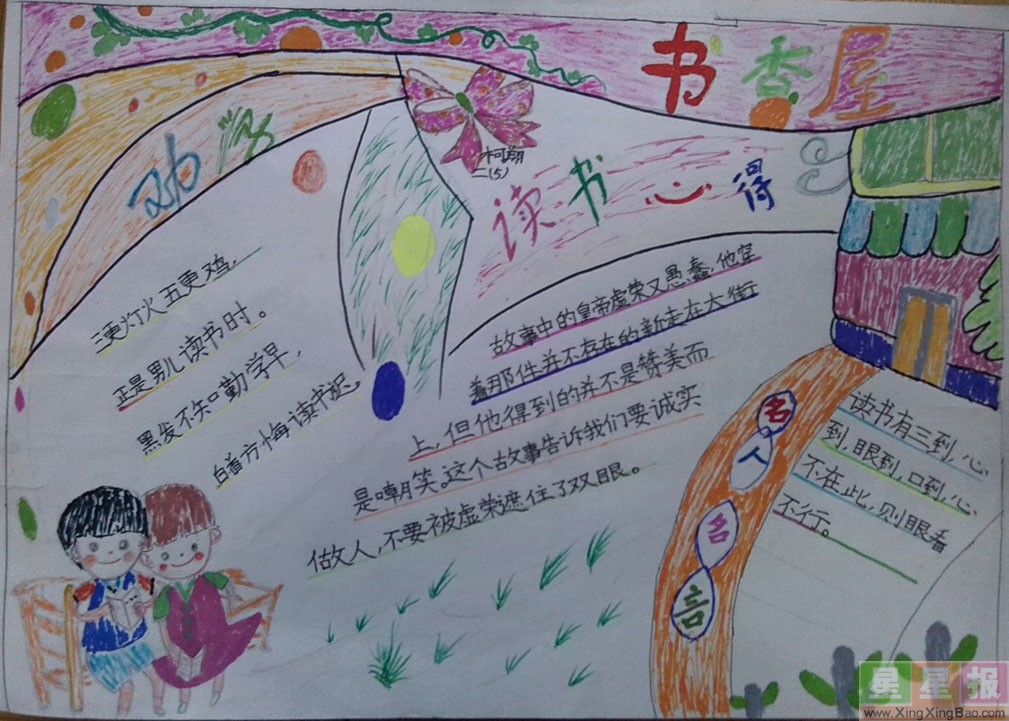 书香屋
劝学
柯翔
二(5)
读书心得
三更灯火五更鸡，
正是男儿读书时。
黑发不知勤学早，
白首方悔读书迟。
故事中的皇帝虚荣又愚蠢，他穿
着那件并不存在的新走在大街
上，但他得到的并不是赞美而
是嘲笑。这个故事告诉我们要诚实
做人，不要被虚荣遮住了双眼。
名人名言
读书有三到，心
到，眼到，口到，心
不在此，则眼看
不行。
星星报
www.XingXingBao.com